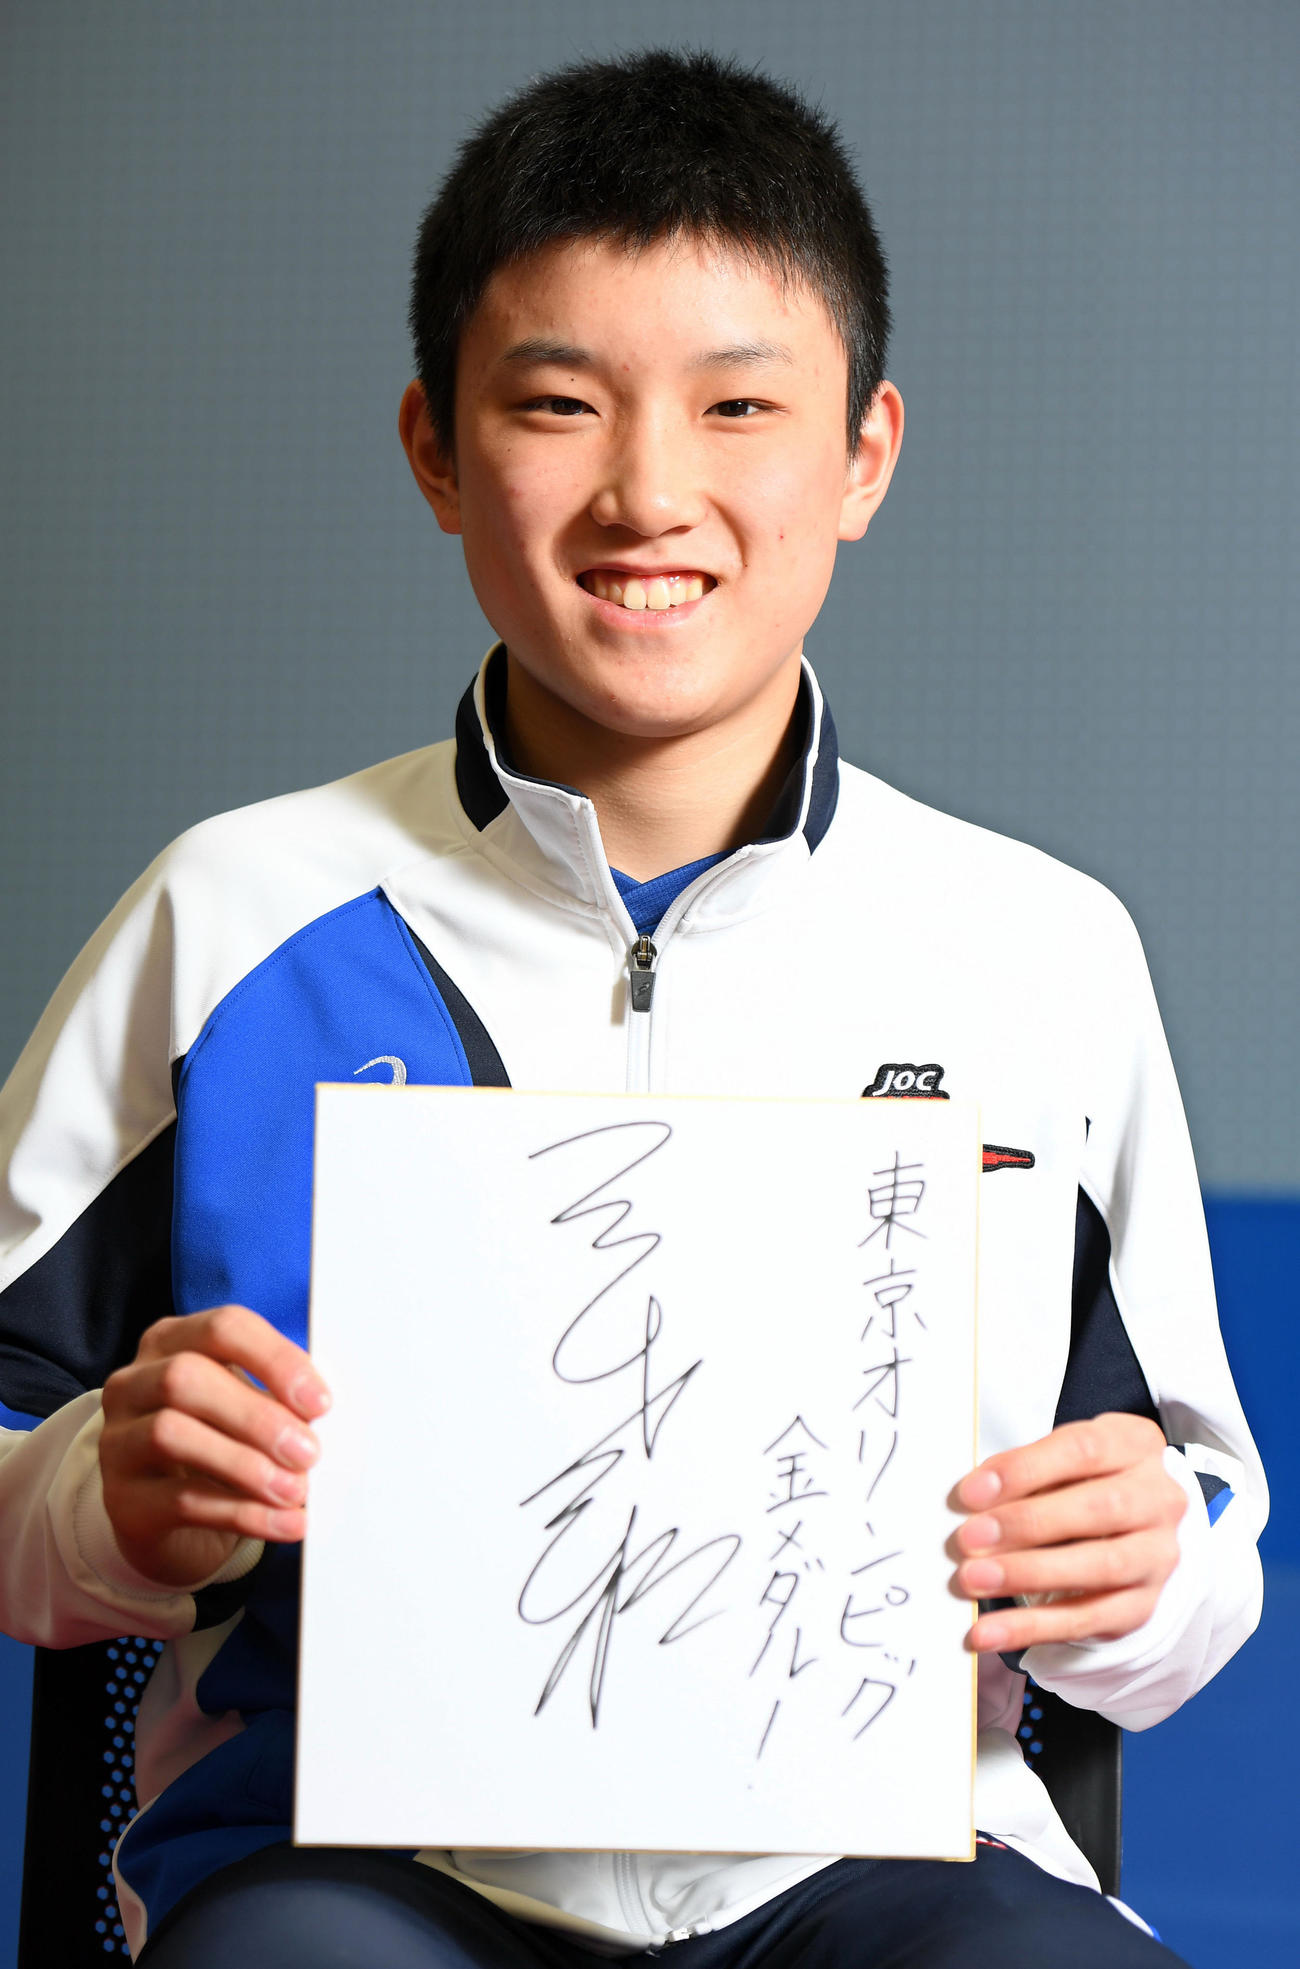 JOC
東京オリンピック
金メダル!